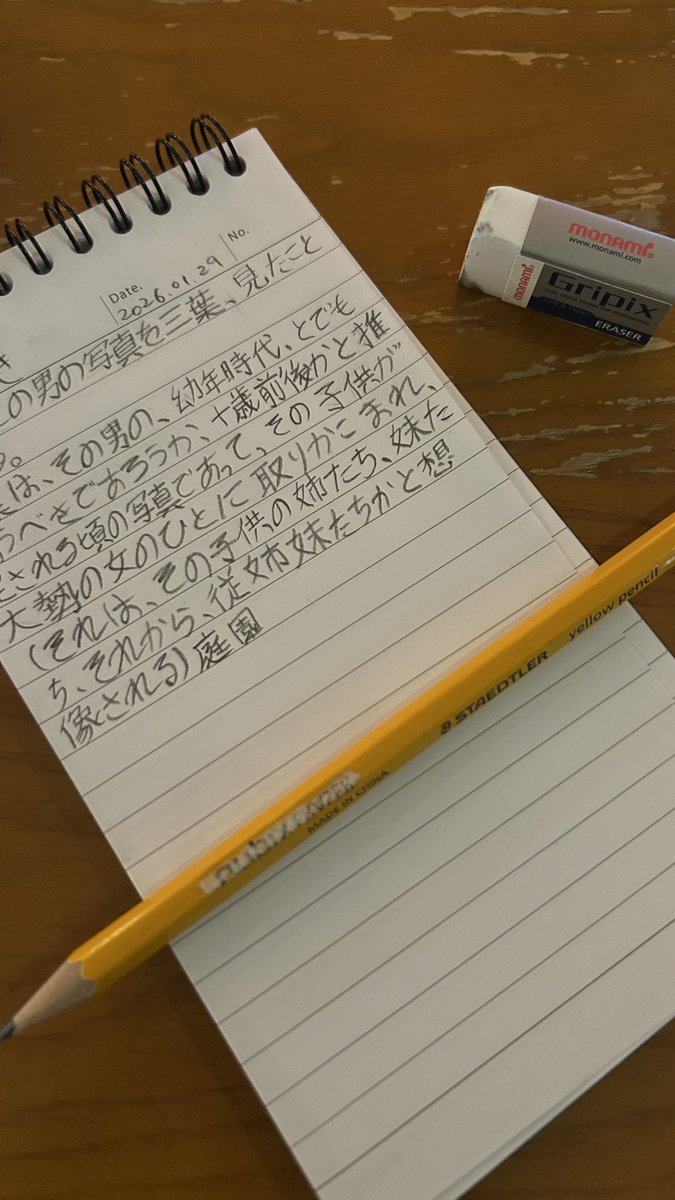 No.
Date.
2026.01.29
き
の男の写真を三葉、見たこと
る。
は、その男の、幼年時代、とでも
うべきであろうか、十歳前後かと推
される頃の写真であって、その子供が
大勢の女のひとに取りかこまれ、
(それは、その子供の姉たち、妹た
ち、それから、従姉妹たちかと想
像される)庭園
monami
www.monami.com
MONAMI
Gripix
ERASER
STAEDTLER yellow pencil
MADE IN CHINA